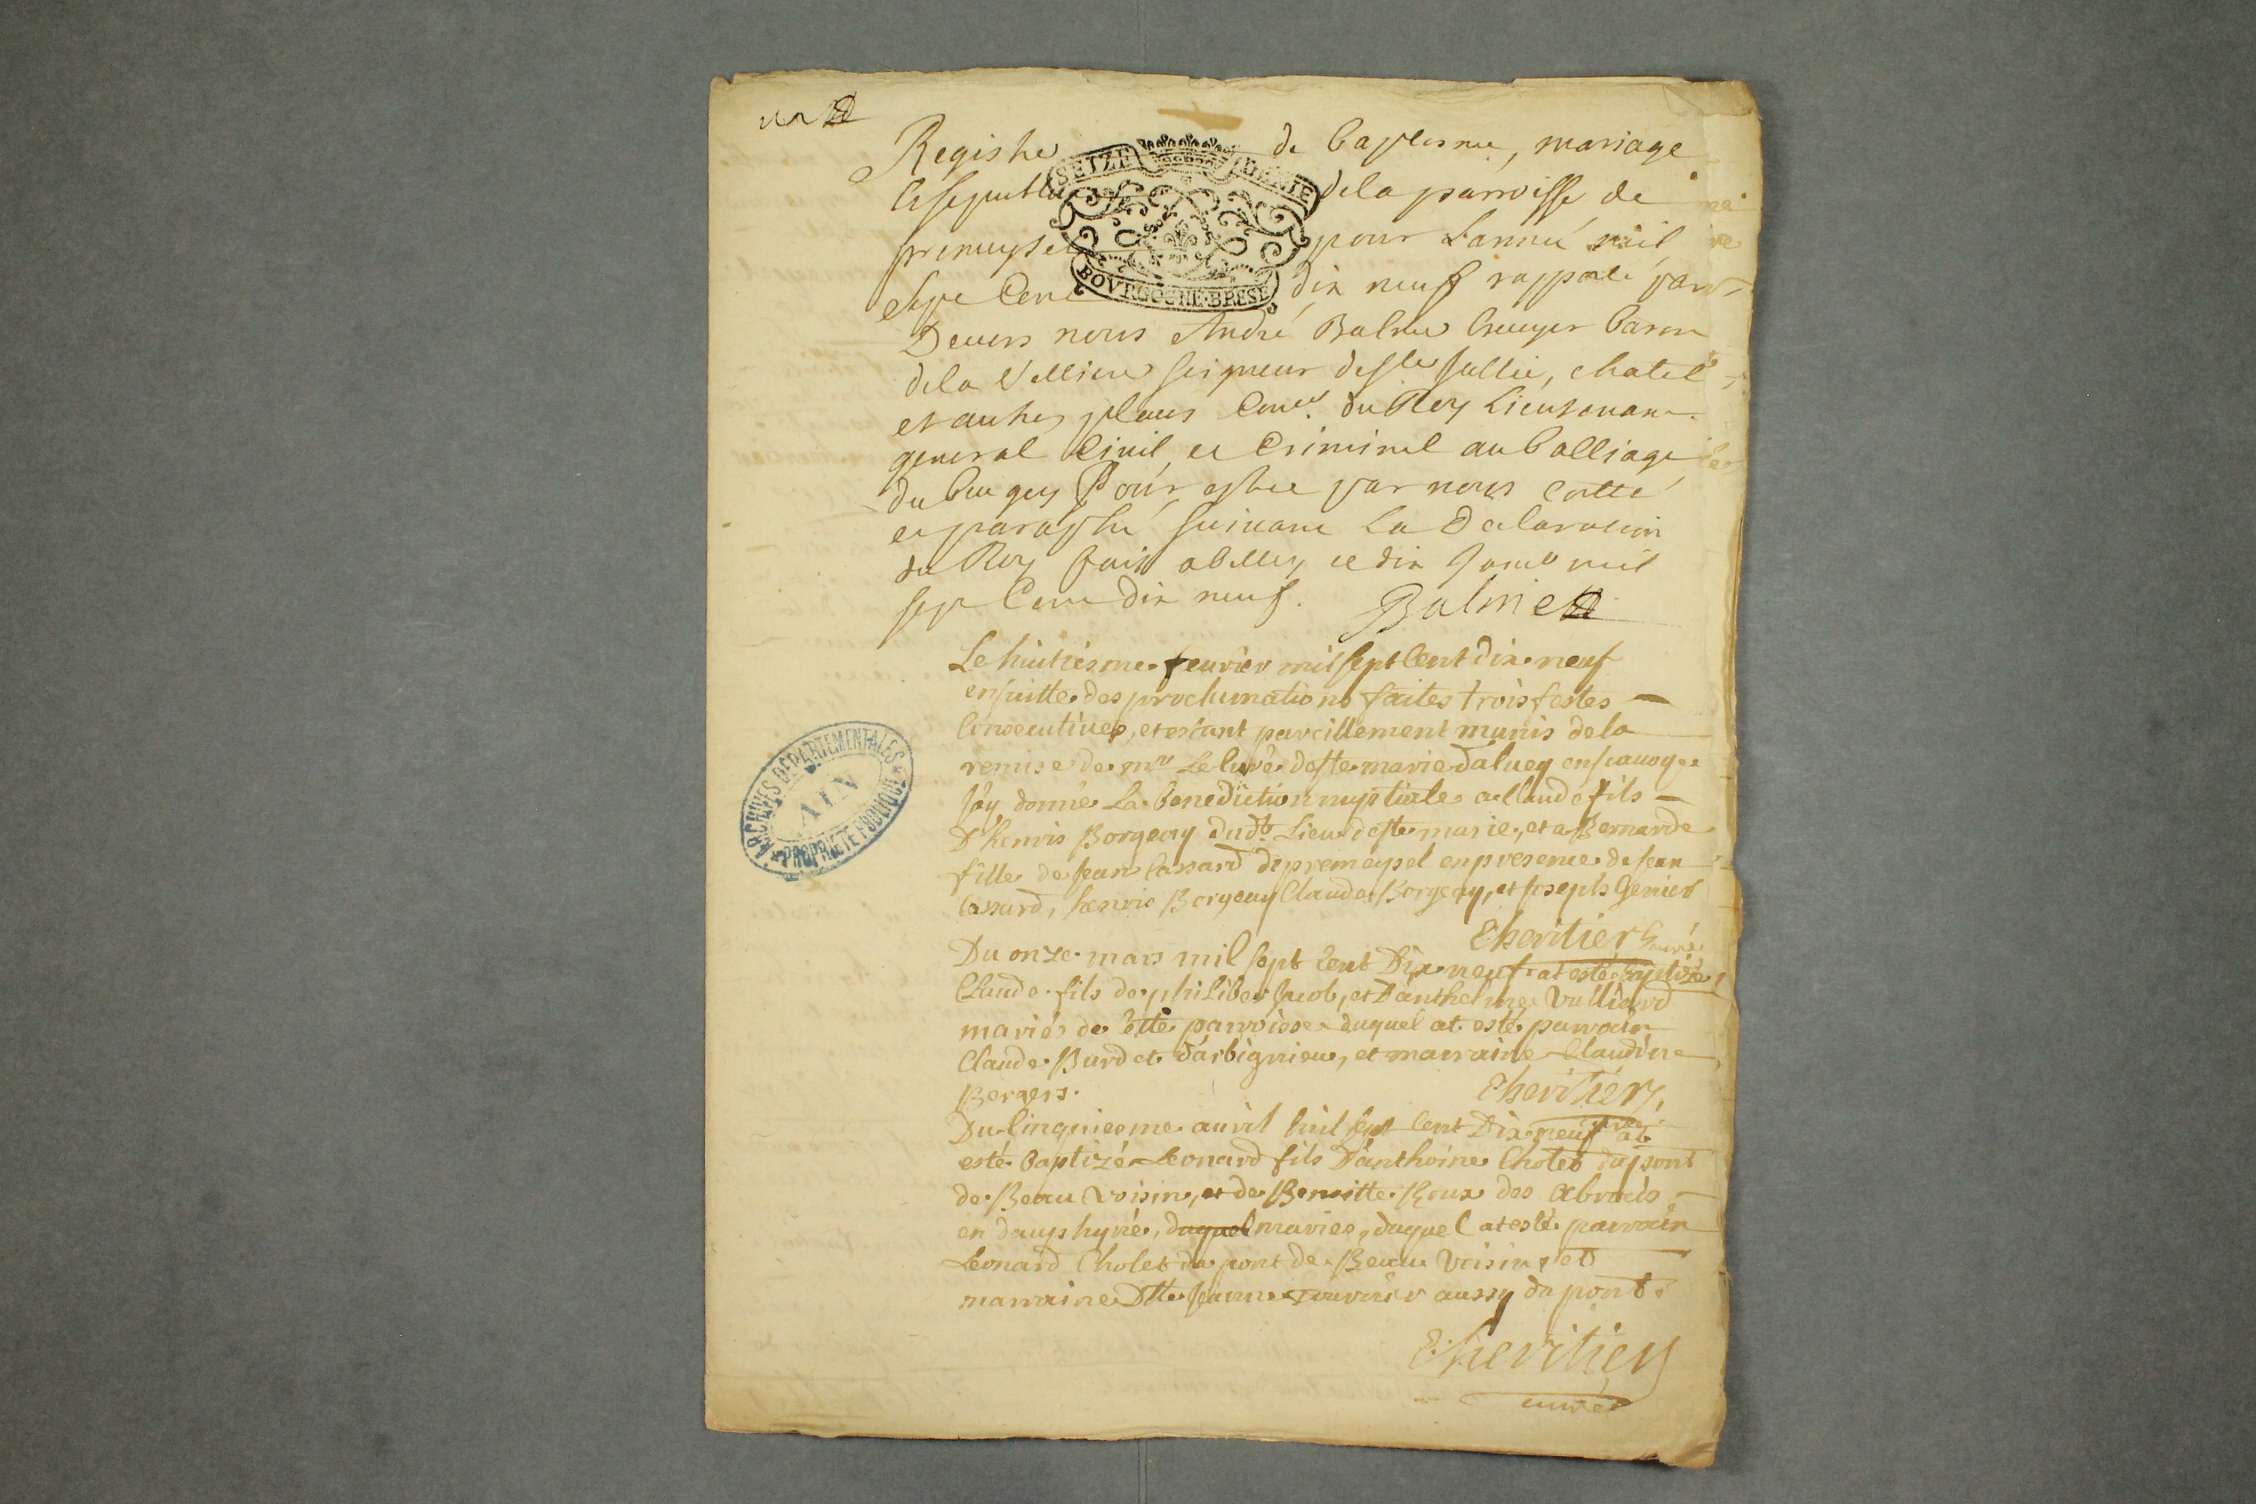 un
Registre de baptesme, mariage
et sepulture de la parroisse de
premeysel pour Lanneé mil
sept Cent dix neuf rapporté par
Devers nous André Balme Escuyer baron
dela Velliere seigneur de Ste Jullie, chatel
et autres places Coner. du Roy Lieutenant
general Civil et Criminel au balliage
du bugey Pour estre par nous cotté
et paraphé suivant La Declaration
du Roy fait a belley ce dix Janvr mil
sept Cent dix neuf. Balme
SEIZE DENIE
BOVRGOGNE·BRESE
ARCHIVES DÉPARTEMENTALES
AIN
PROPRIÉTÉ PUBLIQUE
Le huitiesme feurier mil sept Cent dix neuf
ensuitte des proclamations faites trois festes
Consecutiues, et estant pareillement munis de la
remise de mr Le Curé de ste marie
Jáy donné La benediction nuptiale a Claude fils
D'henris Borgeay dudt Lieu de ste marie, et a Bernarde
fille de Jean Cassard de premeysel en presence de Jean
Cassard, henris Borgeay Claude Borgeay, et Joseph Genier
Lheritier Curé
Du onze mars mil sept Cent Dix neuf at esté baptizé
Claude fils de philibert Jacob, et D'anthelme Vulliard
mariés de cette parroisse duquel at esté parrain
Claude Burdet d'arbignieu, et marraine Claudine
Bergers. Lheritier
curé
Du Cinquiesme auril mil sept Cent Dix neuf at
esté baptizé Leonard fils D'anthoine Cholet du pont
de Beau Voisin, et de Benoitte Roux des abrets
en dauphyné, duquel mariés, duquel at esté parrain
Leonard Cholet du pont de Beau Voisin, et
marraine Dlle Jeanne aussy du pont.
Lheritier
curé